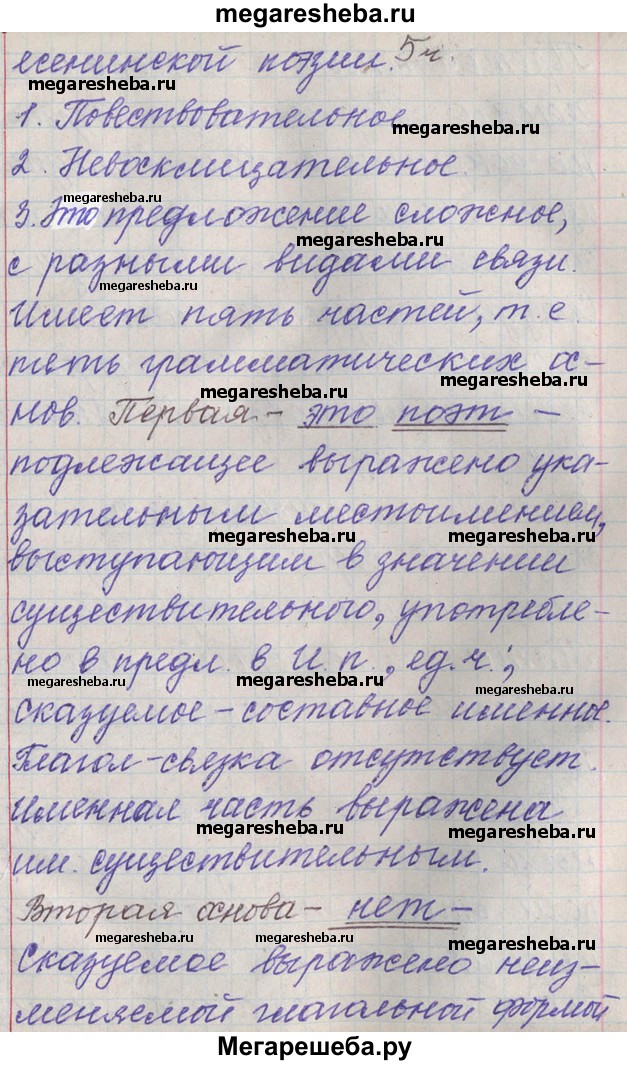 megaresheba.ru
есенинской поэзии. 5ч.
megaresheba.ru
1. Повествовательное
megaresheba.ru
2. Невосклицательное.
megaresheba.ru
3. Это предложение сложное,
megaresheba.ru
с разными видами связи.
megaresheba.ru
Имеет пять частей, т. е.
пять грамматических ос-
megaresheba.ru megaresheba.ru
нов. Первая - это поэт -
подлежащее выражено ука-
зательным местоимением,
megaresheba.ru megaresheba.ru
выступающим в значении
существительного, употребле-
но в предл. в И. п., ед. ч.;
megaresheba.ru megaresheba.ru megaresheba.ru
сказуемое - составное именное.
Глагол-связка отсутствует.
Именная часть выражена
megaresheba.ru megaresheba.ru
им. существительным.
Вторая основа - нет -
megaresheba.ru megaresheba.ru megaresheba.ru
Сказуемое выражено неиз-
меняемой глагольной формой
Мегарешеба.ру